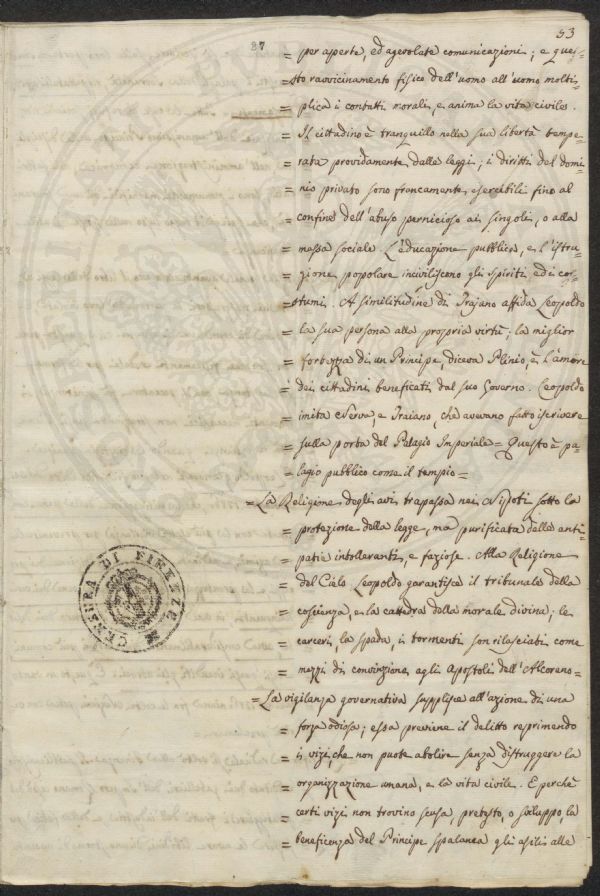 53
37
= per aperte, ed agevolate comunicazioni; e que-
sto ravvicinamento fisico dell'uomo all'uomo molti-
= plica i contatti morali, e anima la vita civile.
= Il cittadino è tranquillo nella sua libertà tempe-
= rata providamente dalle leggi; i diritti del domi-
= nio privato sono francamente esercibili fino al
= confine dell'abuso pernicioso ai singoli, o alla
= massa sociale. L'educazione pubblica, e l'istru-
= zione popolare inciviliscono gli spiriti ed i co-
= stumi. A similitudine di Trajano affida Leopoldo
= la sua persona alla propria virtù; la miglior
= fortezza di un Principe, diceva Plinio, è l'amore
= dei cittadini beneficati dal suo Governo. Leopoldo
= imita Nerva, e Traiano, che avevano fatto iscrivere
= sulla porta del Palagio Imperiale = Questo è pa-
= lagio pubblico come il tempio =
= La Religione degli avi trapassa nei Nipoti sotto la
= protezione della legge, ma purificata dalle anti-
= patie intolleranti, e faziose. Alla Religione
= del Cielo Leopoldo garantisce il tribunale della
= coscienza, e la cattedra della morale divina; le
= carceri, la spada, i tormenti son rilasciati come
= mezzi di convinzione agli Apostoli dell'Alcorano =
= La vigilanza governativa supplisce all'azione di una
= forza odiosa; essa previene il delitto reprimendo
= i vizi, che non puote abolire senza distruggere la
= organizzazione umana, e la vita civile. E perchè
= certi vizi non trovino scusa, pretesto, o sviluppo, la
= beneficenza del Principe spalanca gli asili alle
CENSURA DI FIRENZE